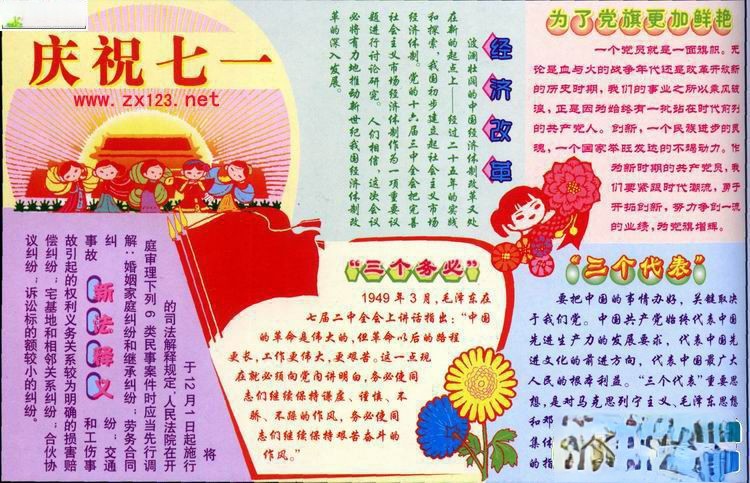 庆祝七一
www.zx123.net
经济改革
波澜壮阔的中国经济体制改革又处
在新的起点上——经过二十五年的实践
和探索,我国初步建立起社会主义市场
经济体制。党的十六届三中全会把完善
社会主义市场经济体制作为一项重要议
题进行讨论研究。人们相信,这次会议
必将有力地推动新世纪我国经济体制改
革的深入发展。
为了党旗更加鲜艳
一个党员就是一面旗帜。无
论是血与火的战争年代还是改革开放新
的历史时期,我们的事业之所以乘风破
浪,正是因为始终有一批站在时代前列
的共产党人。创新,一个民族进步的灵
魂,一个国家举旺发达的不竭动力。作
为新时期的共产党员,我
们要紧跟时代潮流,勇于
开拓创新,努力争创一流
的业绩,为党旗增辉。
新法释义
将
于12月1日起施行
的司法解释规定,人民法院在开
庭审理下列6类民事案件时应当先行调
解:婚姻家庭纠纷和继承纠纷;劳务合同
纠 纷;交通
事故 和工伤事
故引起的权利义务关系较为明确的损害赔
偿纠纷;宅基地和相邻关系纠纷;合伙协
议纠纷;诉讼标的额较小的纠纷。
“三个务必”
1949年3月,毛泽东在
七届二中全会上讲话指出:“中国
的革命是伟大的,但革命以后的路程
更长,工作更伟大,更艰苦。这一点现
在就必须向党内讲明白,务必使同
志们继续保持谦虚、谨慎、不
骄、不躁的作风,务必使同
志们继续保持艰苦奋斗的
作风。”
“三个代表”
要把中国的事情办好,关键取决
于我们党。中国共产党始终代表中国
先进生产力的发展要求,代表中国先
进文化的前进方向,代表中国最广大
人民的根本利益。“三个代表”重要思
想,是对马克思列宁主义、毛泽东思想
和邓
集体
的指